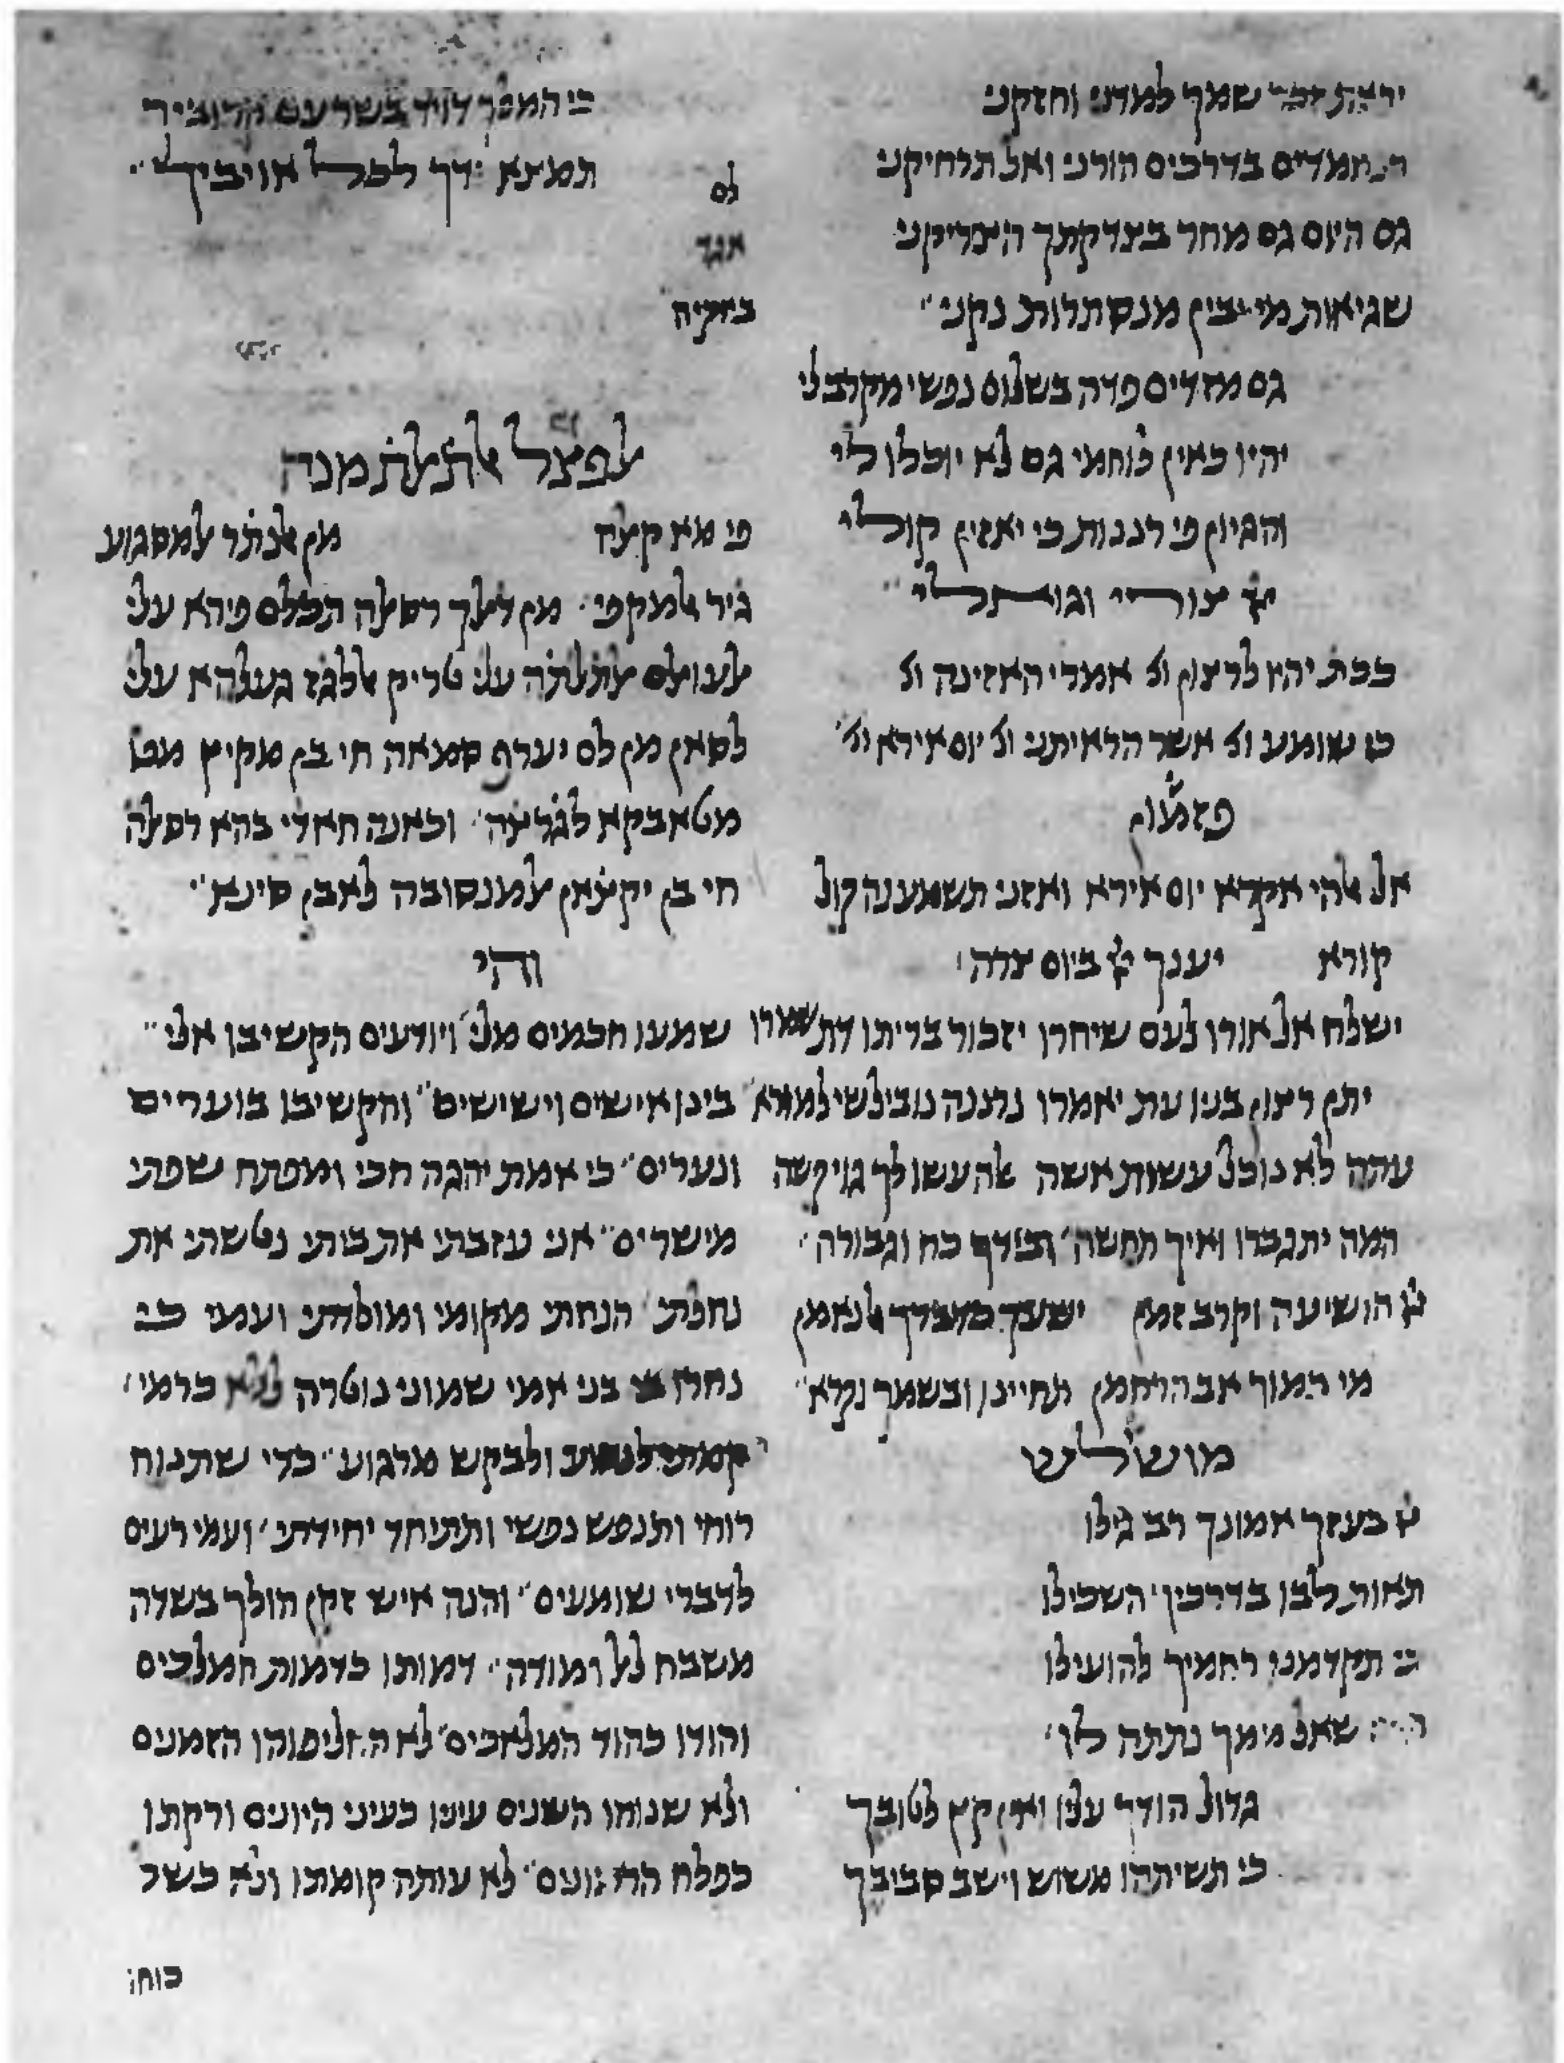 יראת זכר שמך למדני וחזקני
חמדים בדרכים הורני ואל תרחיקני
גם היום גם מחר בצדקתך הצדיקני
שגיאות מי יבין מנסתרות נקני
גם מזדים פדה בשלום נפשי מקרב לי
יהיו כאין לוחמי גם לא יוכלו לי
והגיון פי רננות כי יאזין קולי
ייי צורי וגואלי
ככת יהיו לרצון ול אמרי האזינה ול
שומע ול אשר הראיתני ול יום אירא ול
פזמון
אל אלהי אקרא יום אירא ואזני תשמענה קול
קורא יענך ייי ביום צרה
ישלח אל אורו לעם שיחרו יזכור בריתו דת שמרו
יתן רצון בניו עת יאמרו נרננה נוביל שי למורא
עתה לא נוכל עשות אשה אלה עשו לך גוי קשה
המה יתגברו ואיך תחשה ובידך כח וגבורה
ייי הושיעה וקרב זמן ישעך כדברך הנאמן
מי כמוך אב הרחמן תחיינו ובשמך נקרא
מושלש
ייי בעזך אמונך רב גילו
תאות לבו בדרכיך השכילו
כי תקדמנו רחמיך להועילו
שאל ממך נתתה לו
גדול הודך עליו ואין קץ לטובך
כי תשיתהו משוש וישב סביבך
כי המלך דויד בשר עם
תמצא ידך לכל אויביך
לם
אגד
בקיה
אלפצל אלתאלת מנה
פי מא קאלה מן אלנתר אלמסגוע
גיר אלמקפי מן דלך רסאלה תכלם פיהא עלי
אלעואלם אלתלתה עלי טריק אללגז געלהא עלי
לסאן מן לם יערף סמאה חי בן מקיץ
מטאבקא לגרצה וכאנה חאדי בהא רסאלה
חי בן יקצאן אלמנסובה לאבן סינא
והי
שמעו חכמים מלי ויודעים הקשיבו אלי
בינו אישים וישישים והקשיבו בוערים
ונערים כי אמת יהגה חכי ומפתח שפתי
מישרים אני עזבתי את ביתי נטשתי את
נחלתי הנחתי מקומי ומולדתי ועמי כי
נחרו בי בני אמי שמוני נוטרה ללא כרמי
קמתי לנסוע ולבקש מרגוע כדי שתנוח
רוחי ותנפש נפשי ותתיחד יחידתי ועמי רעים
לדברי שומעים והנה איש זקן הולך בשדה
משבח לאל ומודה דמותו כדמות המלכים
והודו כהוד המלאכים לא החליפוהו הזמנים
ולא שנוהו השנים עיניו כעיני היונים ורקתו
כפלח הרמונים לא עותה קומתו ולא כשל
כוחו